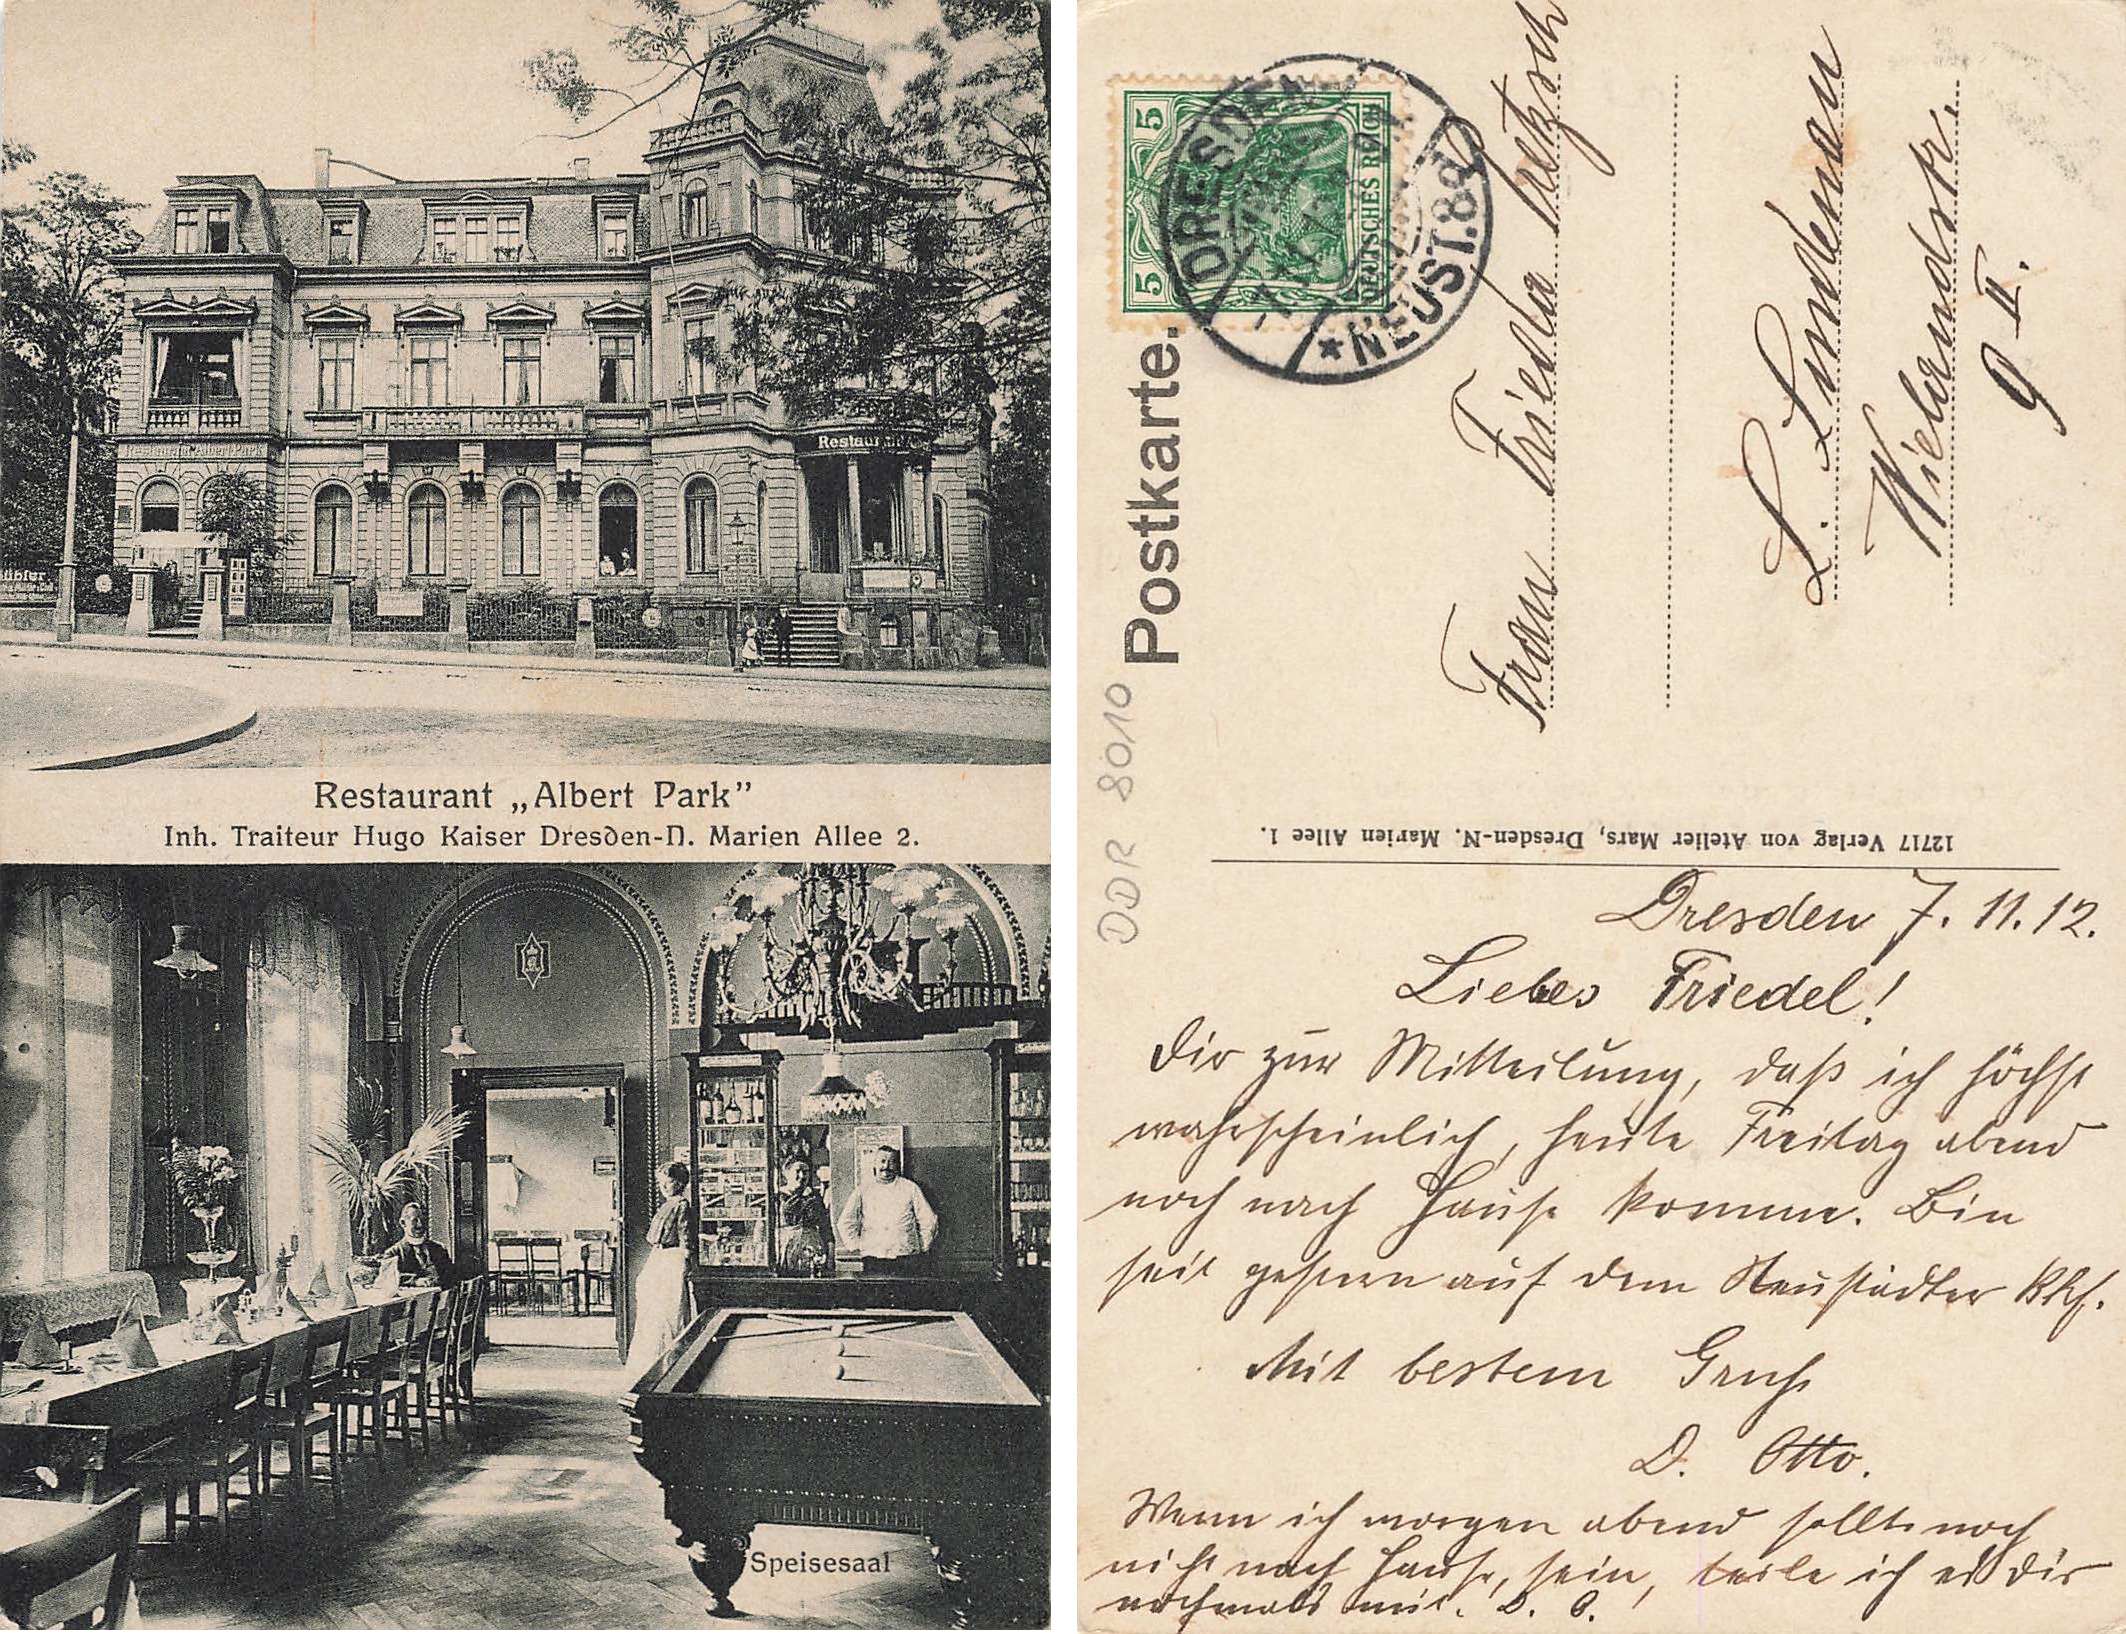 Restaurant Albert Park
Restaurant
Restaurant „Albert Park”
Inh. Traiteur Hugo Kaiser Dresden-N. Marien Allee 2.
Speisesaal
Postkarte.
5
5
DEUTSCHES REICH
DRESDEN
* NEUST. 8
Frau Frieda
L. Lindeman
Wielandstr.
9 II.
DDR 8010
12717 Verlag von Atelier Mars, Dresden-N. Marien Allee 1.
Dresden 7. 11. 12.
Liebes Friedel!
Dir zur Mitteilung, daß ich höchst
wahrscheinlich, heute Freitag abend
noch nach Hause komme. Bin
seit gestern auf dem Neustädter Bhf.
Mit bestem Gruß
D. Otto.
Wenn ich morgen abend sollte noch
nicht nach Hause, sein, teile ich es Dir
nochmals mit. D. O.